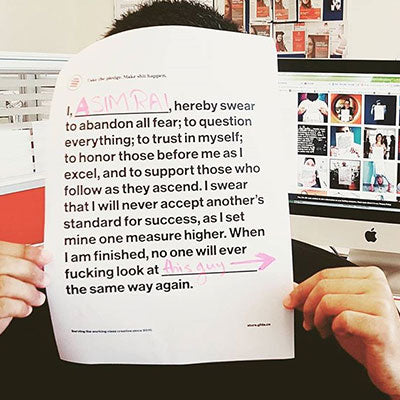 Take the pledge. Make shit happen.
I, ASIM RAI, hereby swear
to abandon all fear; to question
everything; to trust in myself;
to honor those before me as I
excel, and to support those who
follow as they ascend. I swear
that I will never accept another's
standard for success, as I set
mine one measure higher. When
I am finished, no one will ever
fucking look at this guy →
the same way again.
Serving the working class creative since